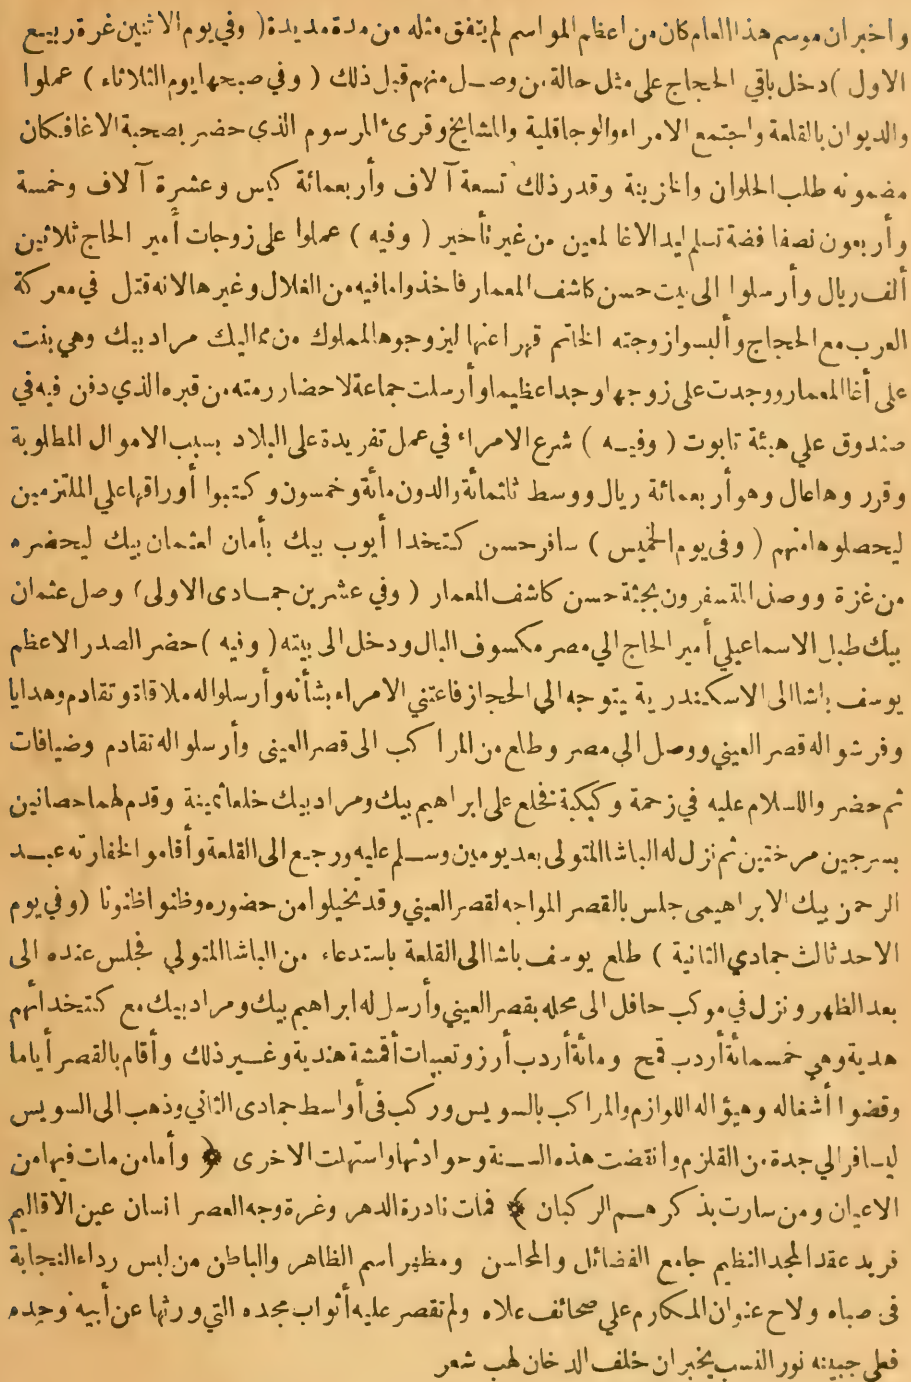 واخبر ان موسم هذا العام كان من اعظم المواسم لم يتفق مثله من مدة مديدة ( وفي يوم الاثنين غرة ربيع
الاول ) دخل باقي الحجاج على مثل حالة من وصل منهم قبل ذلك ( وفي صبحها يوم الثلاثاء ) عملوا
والديوان بالقلعة واجتمع الامراء والوجاقلية والمشايخ وقرئ المرسوم الذي حضر بصحبة الاغا فكان
مضمونه طلب الحلوان والخزينة وقدر ذلك تسعة آلاف وأربعمائة كيس وعشرة آلاف وخمسة
وأربعون نصفا فضة تسلم ليد الاغا لمعين من غير تأخير ( وفيه ) عملوا على زوجات أمير الحاج ثلاثين
ألف ريال وأرسلوا الى بيت حسن كاشف المعمار فاخذوا ما فيه من الغلال وغيرها لانه قتل في معركة
العرب مع الحجاج وألبسوا زوجته الخاتم قهرا عنها ليزوجوها لمملوك من مماليك مراد بيك وهي بنت
على أغا المعمار ووجدت على زوجها وجدا عظيما وأرسلت جماعة لاحضار رمته من قبره الذي دفن فيه في
صندوق علي هيئة تابوت ( وفيه ) شرع الامراء في عمل تفريدة على البلاد بسبب الاموال المطلوبة
وقرروها عال وهو أربعمائة ريال ووسط ثلثمائة والدون مائة وخمسون وكتبوا أوراقها علي الملتزمين
ليحصلوها منهم ( وفى يوم الخميس ) سافر حسن كتخدا أيوب بيك بأمان لعثمان بيك ليحضره
من غزة ووصل المتسفرون بجثة حسن كاشف المعمار ( وفي عشرين جمادى الاولى ) وصل عثمان
بيك طبل الاسماعيلي أمير الحاج الي مصر مكسوف البال ودخل الى بيته ( وفيه ) حضر الصدر الاعظم
يوسف باشا الى الاسكندرية يتوجه الي الحجاز فاعتني الامراء بشأنه وأرسلوا له ملاقاة وتقادم وهدايا
وفرشوا له قصر العيني ووصل الي مصر وطلع من المراكب الى قصر العينى وأرسلوا له تقادم وضيافات
ثم حضر والسلام عليه في زحمة وكبكبة فخلع على ابراهيم بيك ومراد بيك خلعا ثمينة وقدم لهما حصانين
بسرجين مرختين ثم نزل له الباشا المتولى بعد يومين وسلم عليه ورجع الى القلعة وأقاموا لخفارته عبد
الرحمن بيك الابراهيمى جلس بالقصر المواجه لقصر العيني وقد تخيلوا من حضوره وظنوا ظنونا ( وفي يوم
الاحد ثالث جمادي الثانية ) طلع يوسف باشا الى القلعة باستدعاء من الباشا المتولي فجلس عنده الى
بعد الظهر ونزل في موكب حافل الى محله بقصر العيني وأرسل له ابراهيم بيك ومراد بيك مع كتخدائهم
هدية وهي خمسمائة أردب قمح ومائة أردب أرز وتعبيات أقمشة هندية وغير ذلك وأقام بالقصر أياما
وقضوا أشغاله وهيؤا له اللوازم والمراكب بالسويس وركب فى أواسط جمادى الثاني وذهب الى السويس
ليسافر الي جدة من القلزم وانقضت هذه السنة وحوادثها واستهلت الاخرى ﴿ وأما من مات فيها من
الاعيان ومن سارت بذكرهم الركبان ﴾ فمات نادرة الدهر وغرة وجه العصر انسان عين الاقاليم
فريد عقد المجد النظيم جامع الفضائل والمحاسن ومظهر اسم الظاهر والباطن من لبس رداء النجابة
فى صباه ولاح عنوان المكارم علي صحائف علاه ولم تقصر عليه أثواب مجده التي ورثها عن أبيه وجده
فعلى جبينه نور النسب يخبر ان خلف الدخان لهب شعر